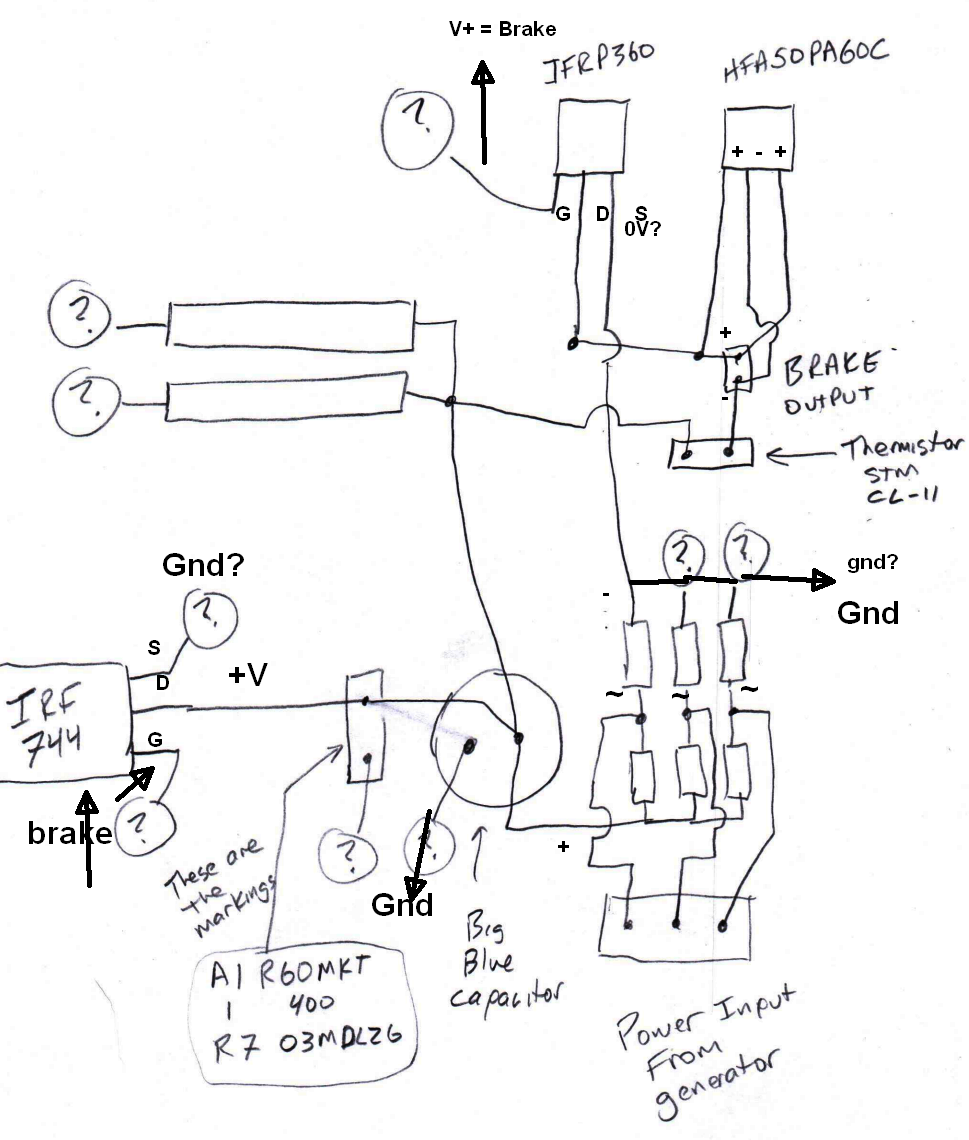 V+ = Brake
IFRP360
HFA50PA60C
?
+ - +
G D S
0V?
?
?
+
-
BRAKE
OUTPUT
Thermistor
STM
CL-11
Gnd?
?
?
?
gnd?
Gnd
-
S
D
+V
IRF
744
G
~ ~ ~
brake
?
?
?
Gnd
+
These are
the
markings
Big
Blue
capacitor
A1 R60MKT
1 400
R7 03MDL26
Power Input
From
generator